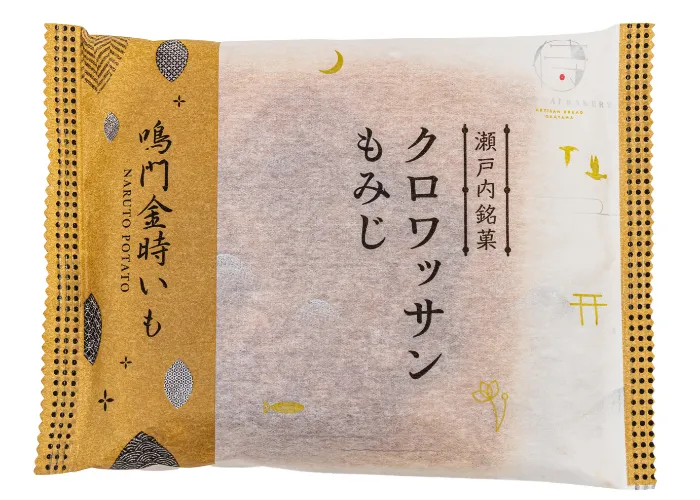 瀬戸内銘菓
クロワッサン
もみじ
鳴門金時いも
NARUTO POTATO
ARTISAN BREAD
OKAYAMA